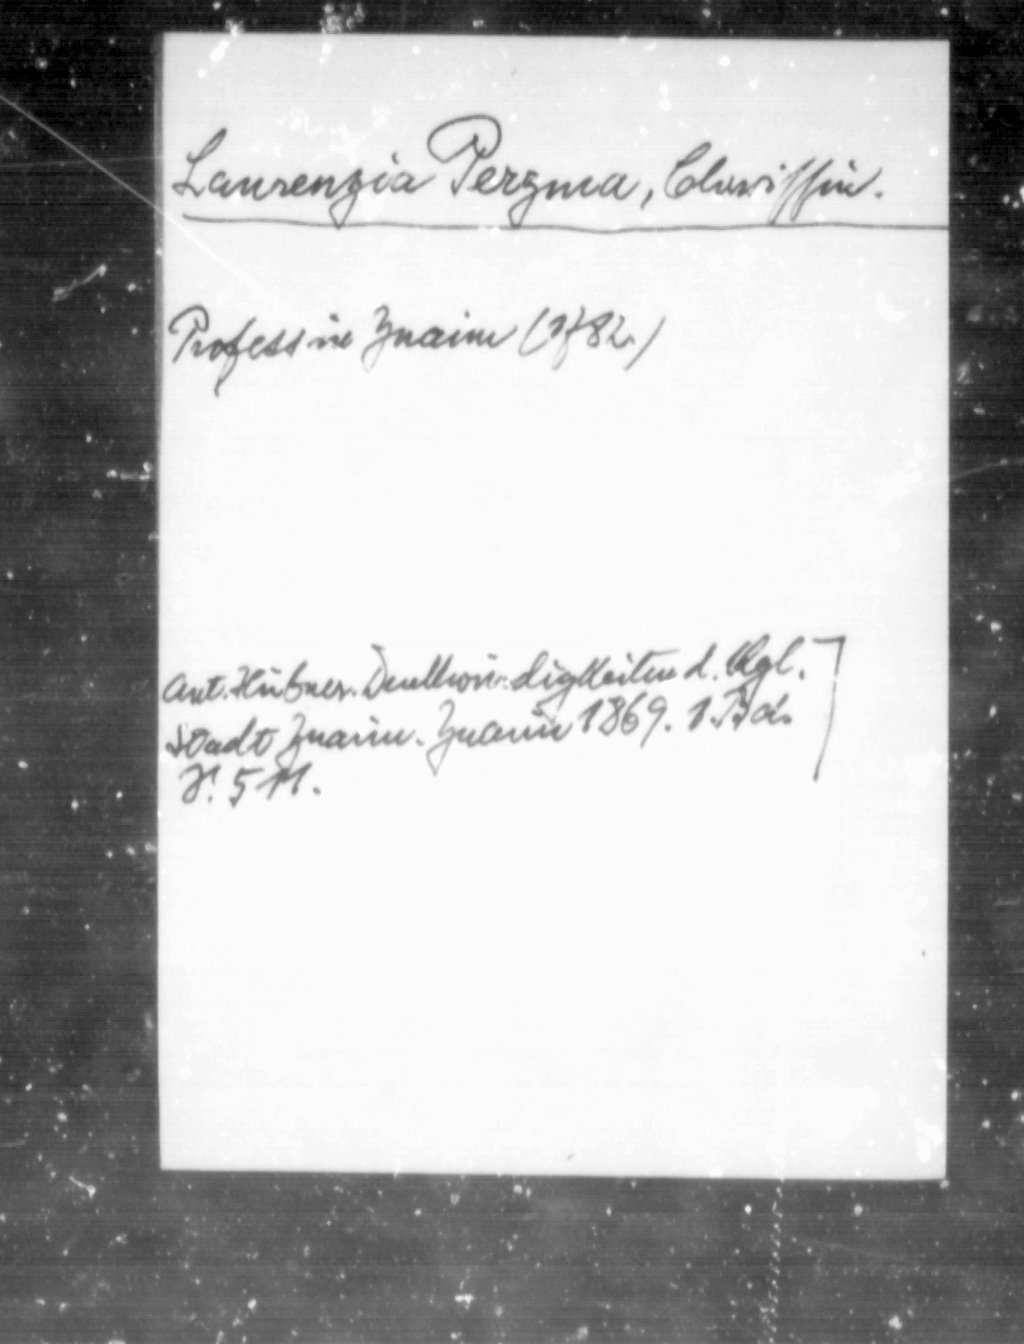 Laurenzia Perzma, Clarissin.
Professin Znaim (1782.)
Ant. Hübner. Denkwürdigkeiten d. kgl.
Stadt Znaim. Znaim 1869. 1. Bd.
S. 511.